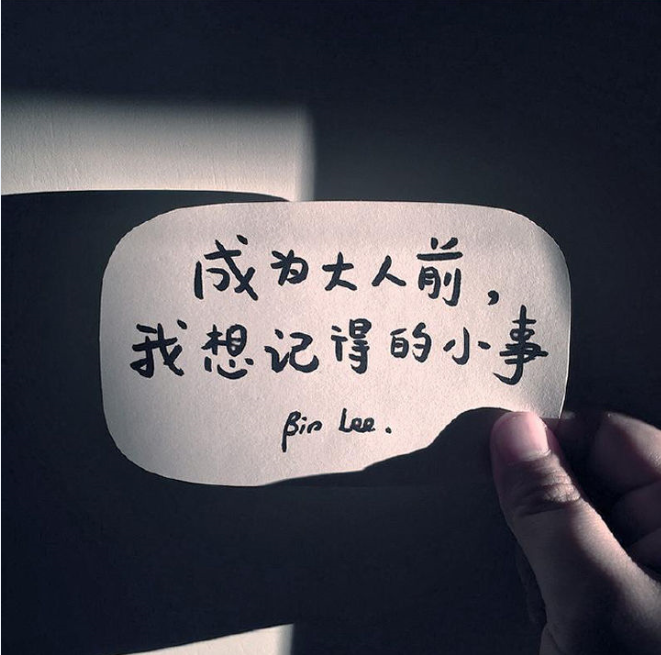 成为大人前，
我想记得的小事
Bin Lee.